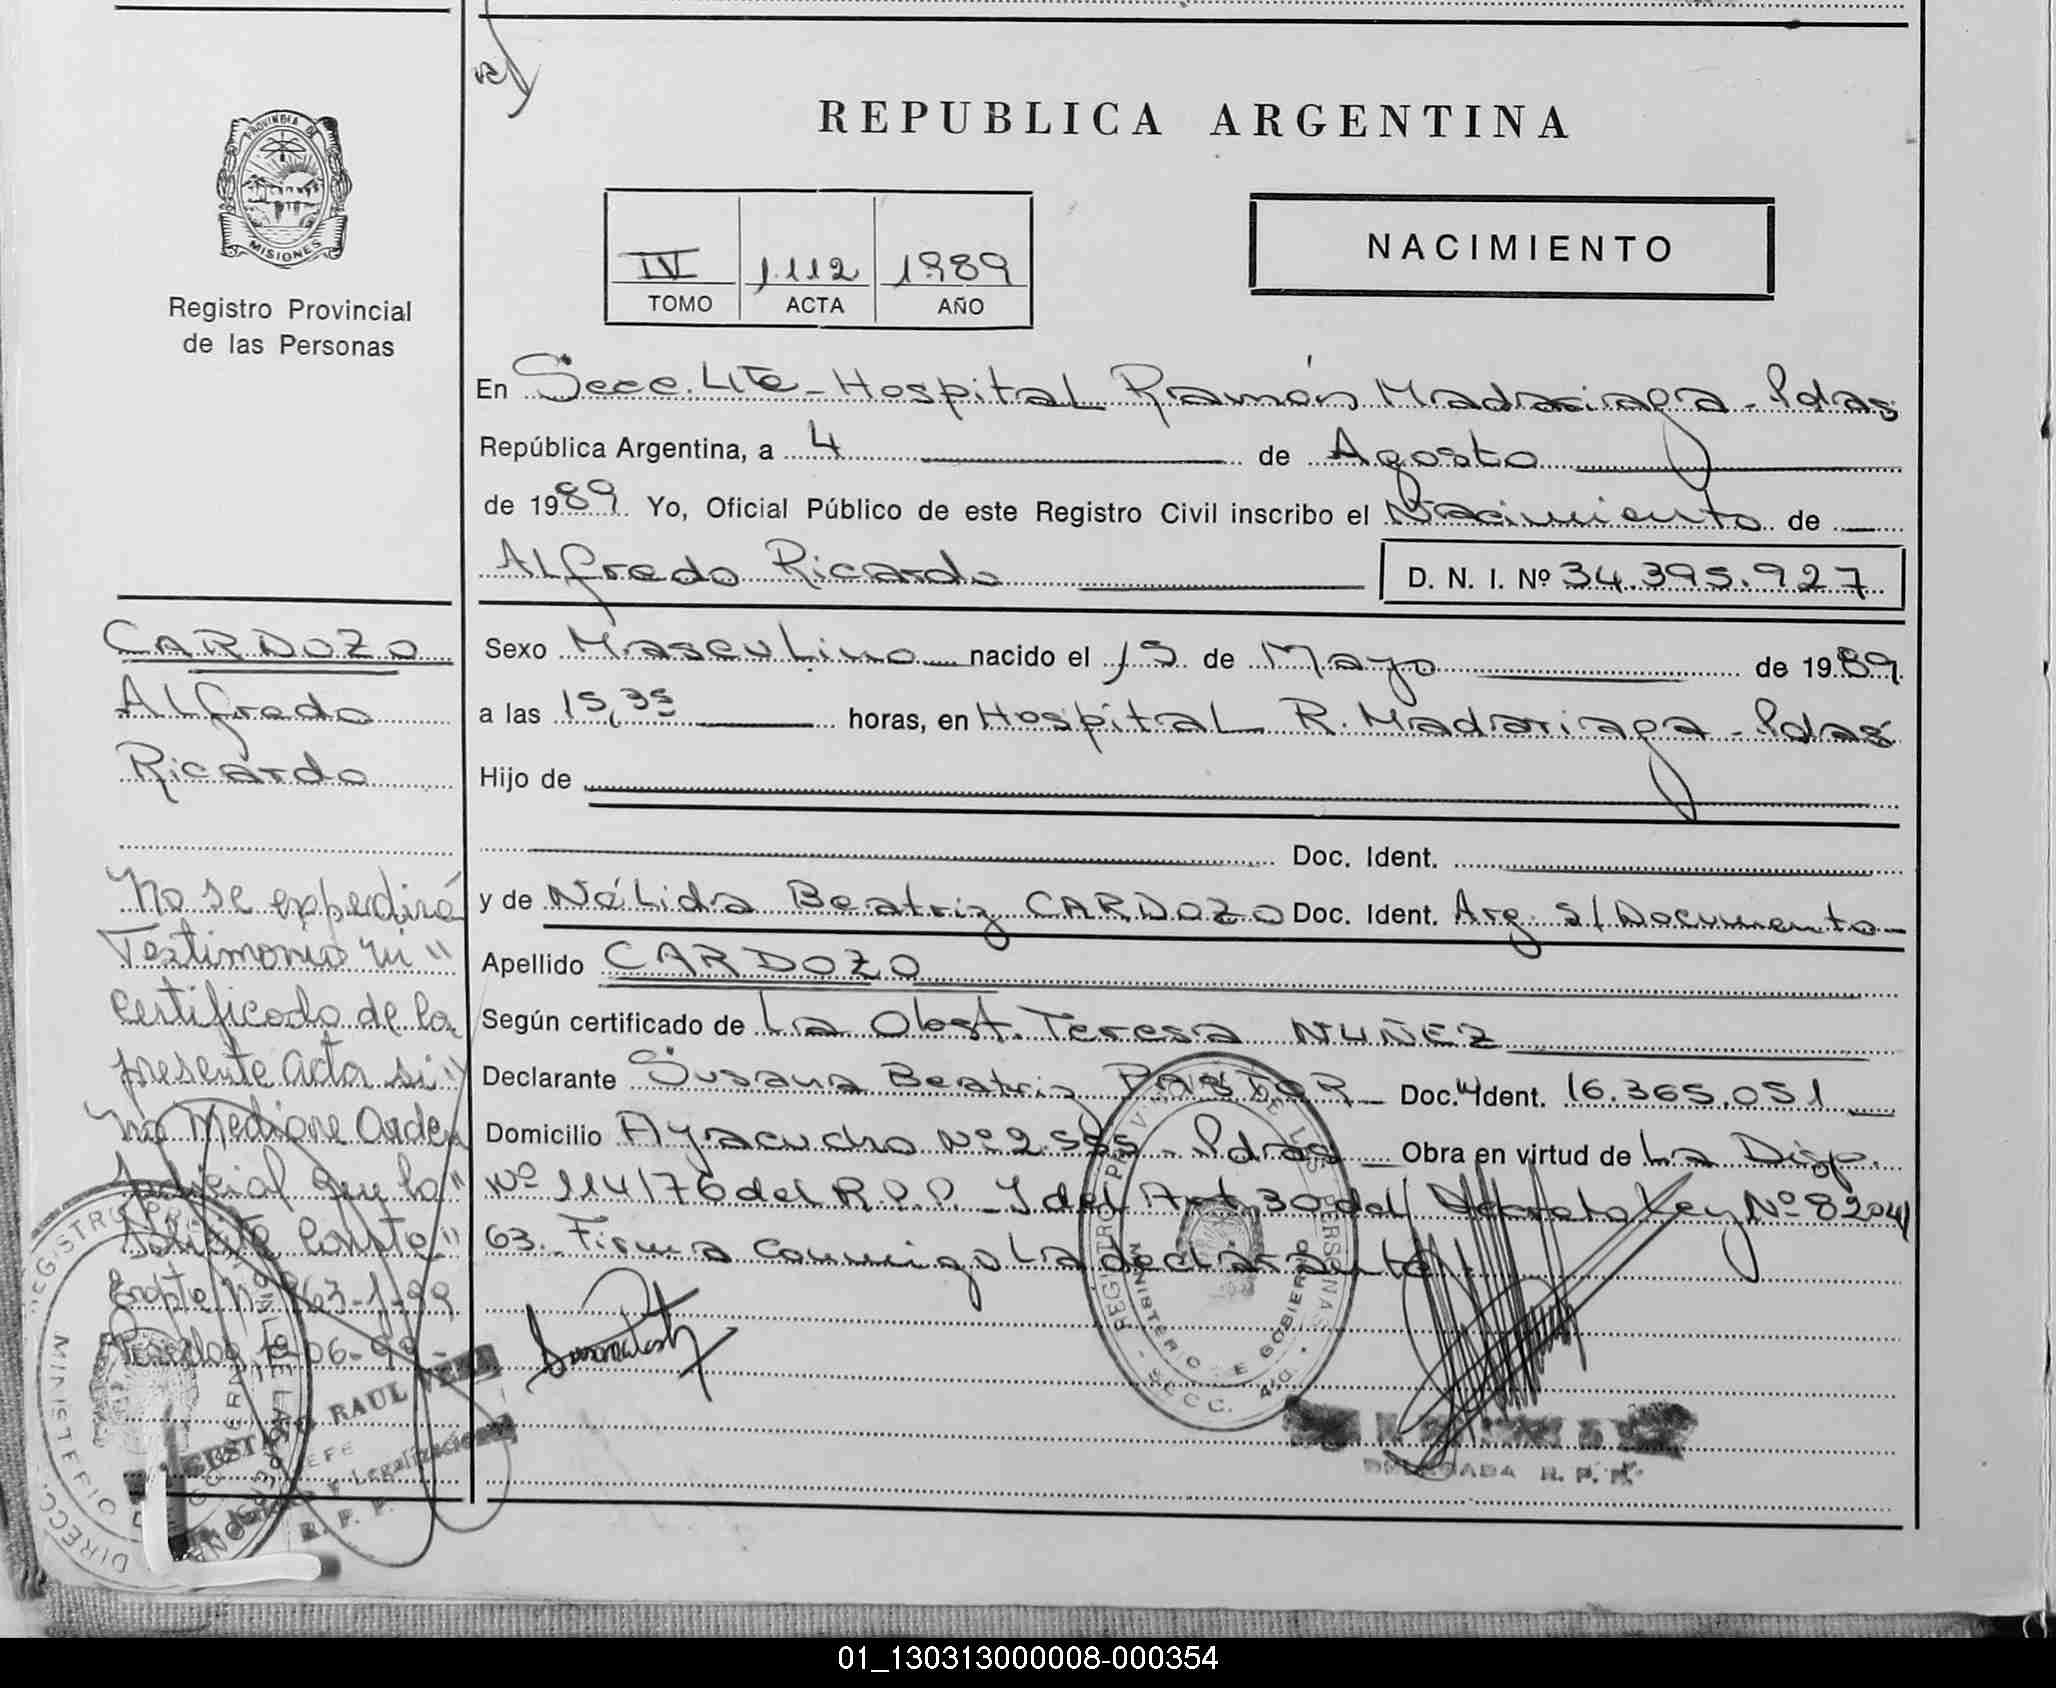 REPUBLICA ARGENTINA
PROVINCIA DE
MISIONES
Registro Provincial
de las Personas
IV 1112 1989
TOMO ACTA AÑO
NACIMIENTO
En Secc. 4ta - Hospital Ramón Madariaga - Pdas
República Argentina, a 4 de Agosto
de 1989 Yo, Oficial Público de este Registro Civil inscribo el Nacimiento de
Alfredo Ricardo D. N. I. Nº 34.395.927
CARDOZO
Alfredo
Ricardo
Sexo Masculino nacido el 15 de Mayo de 1989
a las 15,35 horas, en Hospital R. Madariaga - Pdas
Hijo de
Doc. Ident.
y de Nélida Beatriz CARDOZO Doc. Ident. Arg. s/Documento
Apellido CARDOZO
Según certificado de La Obst. Teresa NUÑEZ
Declarante Susana Beatriz PASTOR Doc. Ident. 16.365.051
Domicilio Ayacucho Nº 2.555 - Pdas Obra en virtud de La Disp.
Nº 114/76 del R.P.P. y del Art. 30 del Decreto Ley Nº 8204/
63. Firma conmigo la declarante
No se expedirá
Testimonio ni "
Certificado de la
presente acta si "
no Mediare Orden
Judicial que lo "
Solicite Conste "
Expte Nº 963-1-99
Posadas 06-99
RAUL
JEFE
y Legalizaciones
R. P. P.
REGISTRO PROVINCIAL DE LAS PERSONAS
MINISTERIO DE GOBIERNO
DIRECC.
REGISTRO PROVINCIAL DE LAS PERSONAS
MINISTERIO DE GOBIERNO
SECC. 4ta.
DELEGADA R. P. P.
01_130313000008-000354